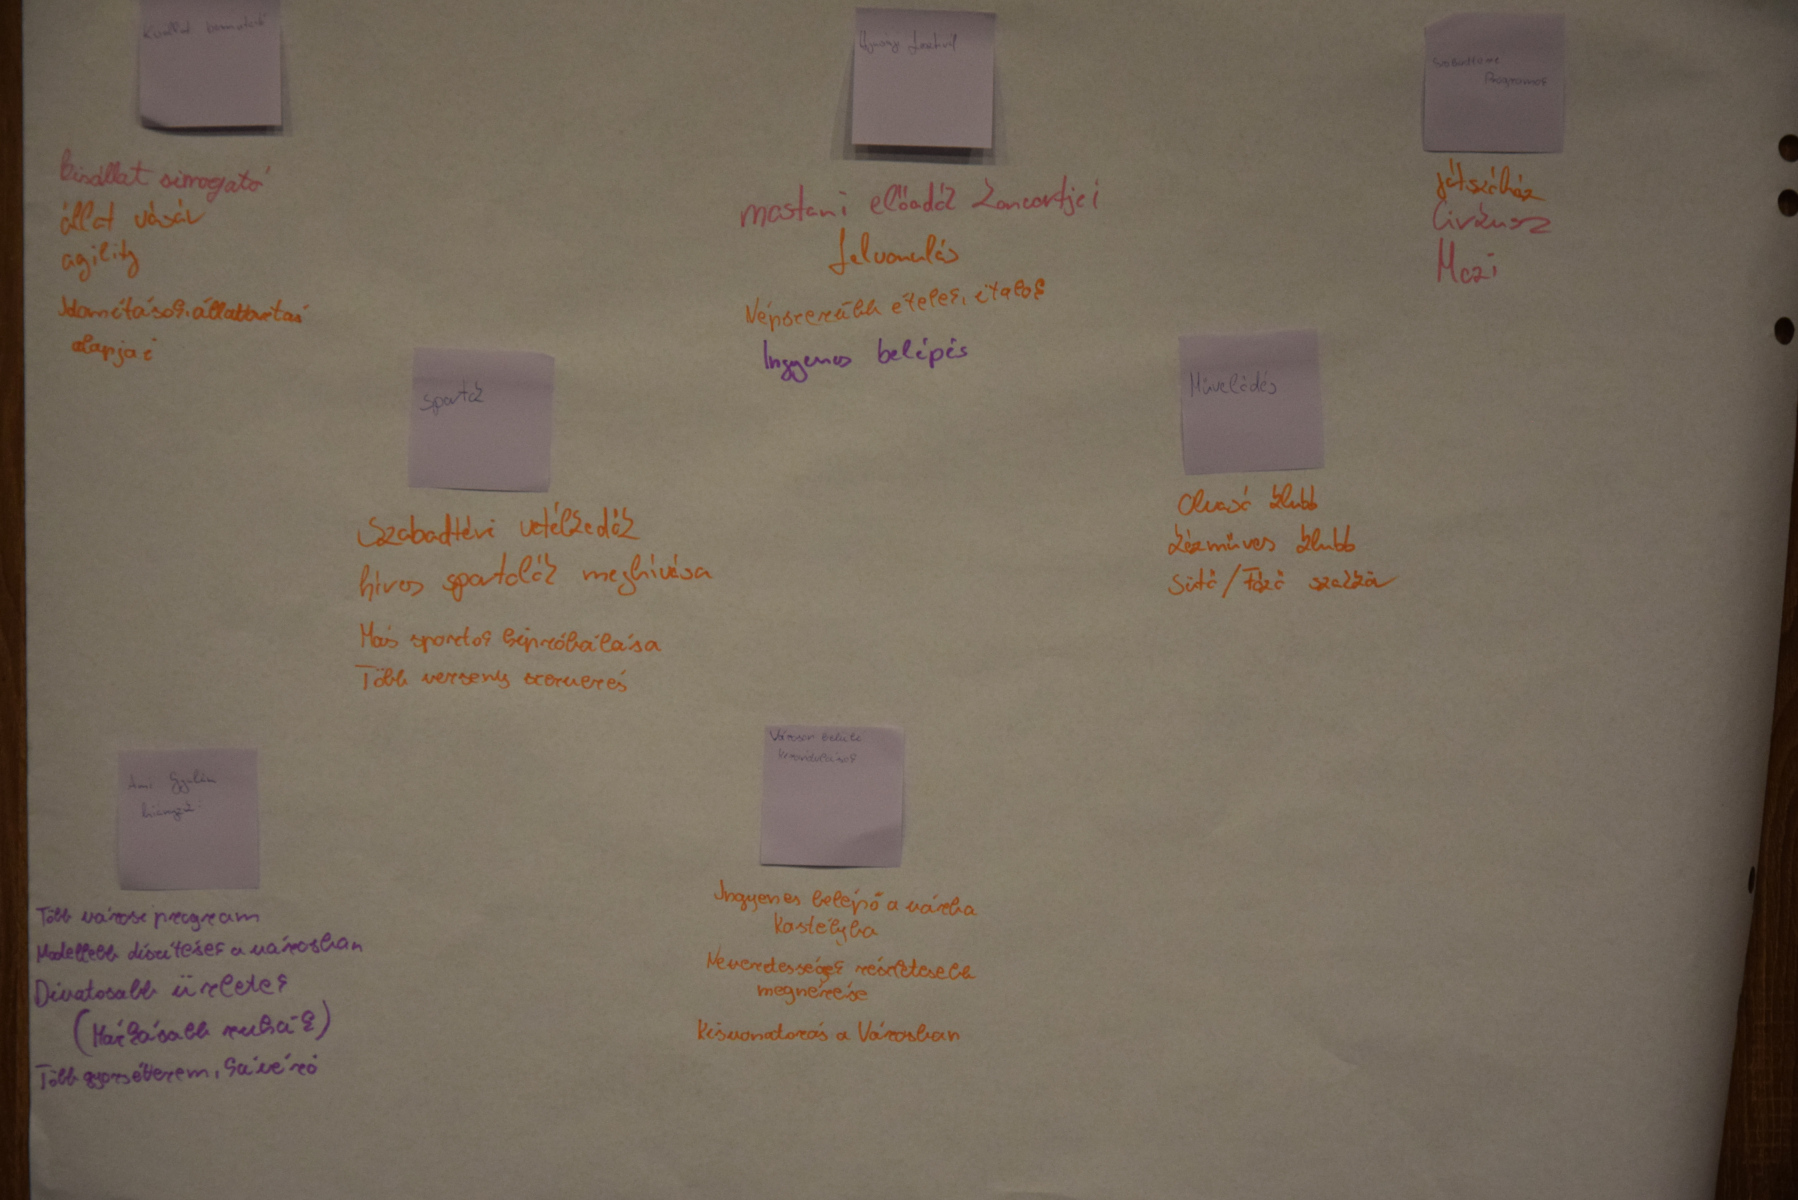 Kisállat bemutató
kisállat simogató
állat vásár
agility
Idomítások, állattartás
alapjai
Gyulai fesztivál
mostani előadók koncertjei
felvonulás
Népszerűbb ételek, italok
Ingyenes belépés
Szabadtéri
Programok
játszóház
Cirkusz
Mozi
Sportok
Szabadtéri vetélkedők
híres sportolók meghívása
Más sportok kipróbálása
Több verseny szervezés
Művelődés
Olvasó klubb
kézműves klubb
Sütő/Főző szakkör
Ami Gyulán
hiányzik
Több városi program
Modellebb díszítések a városban
Divatosabb üzletek
(Márkásabb ruhák)
Több gyorsétterem, kávézó
Városon belüli
kirándulások
Ingyenes belépő a várba
kastélyba
Nevezetességek részletesebb
megnézése
Kisvonatozás a Városban